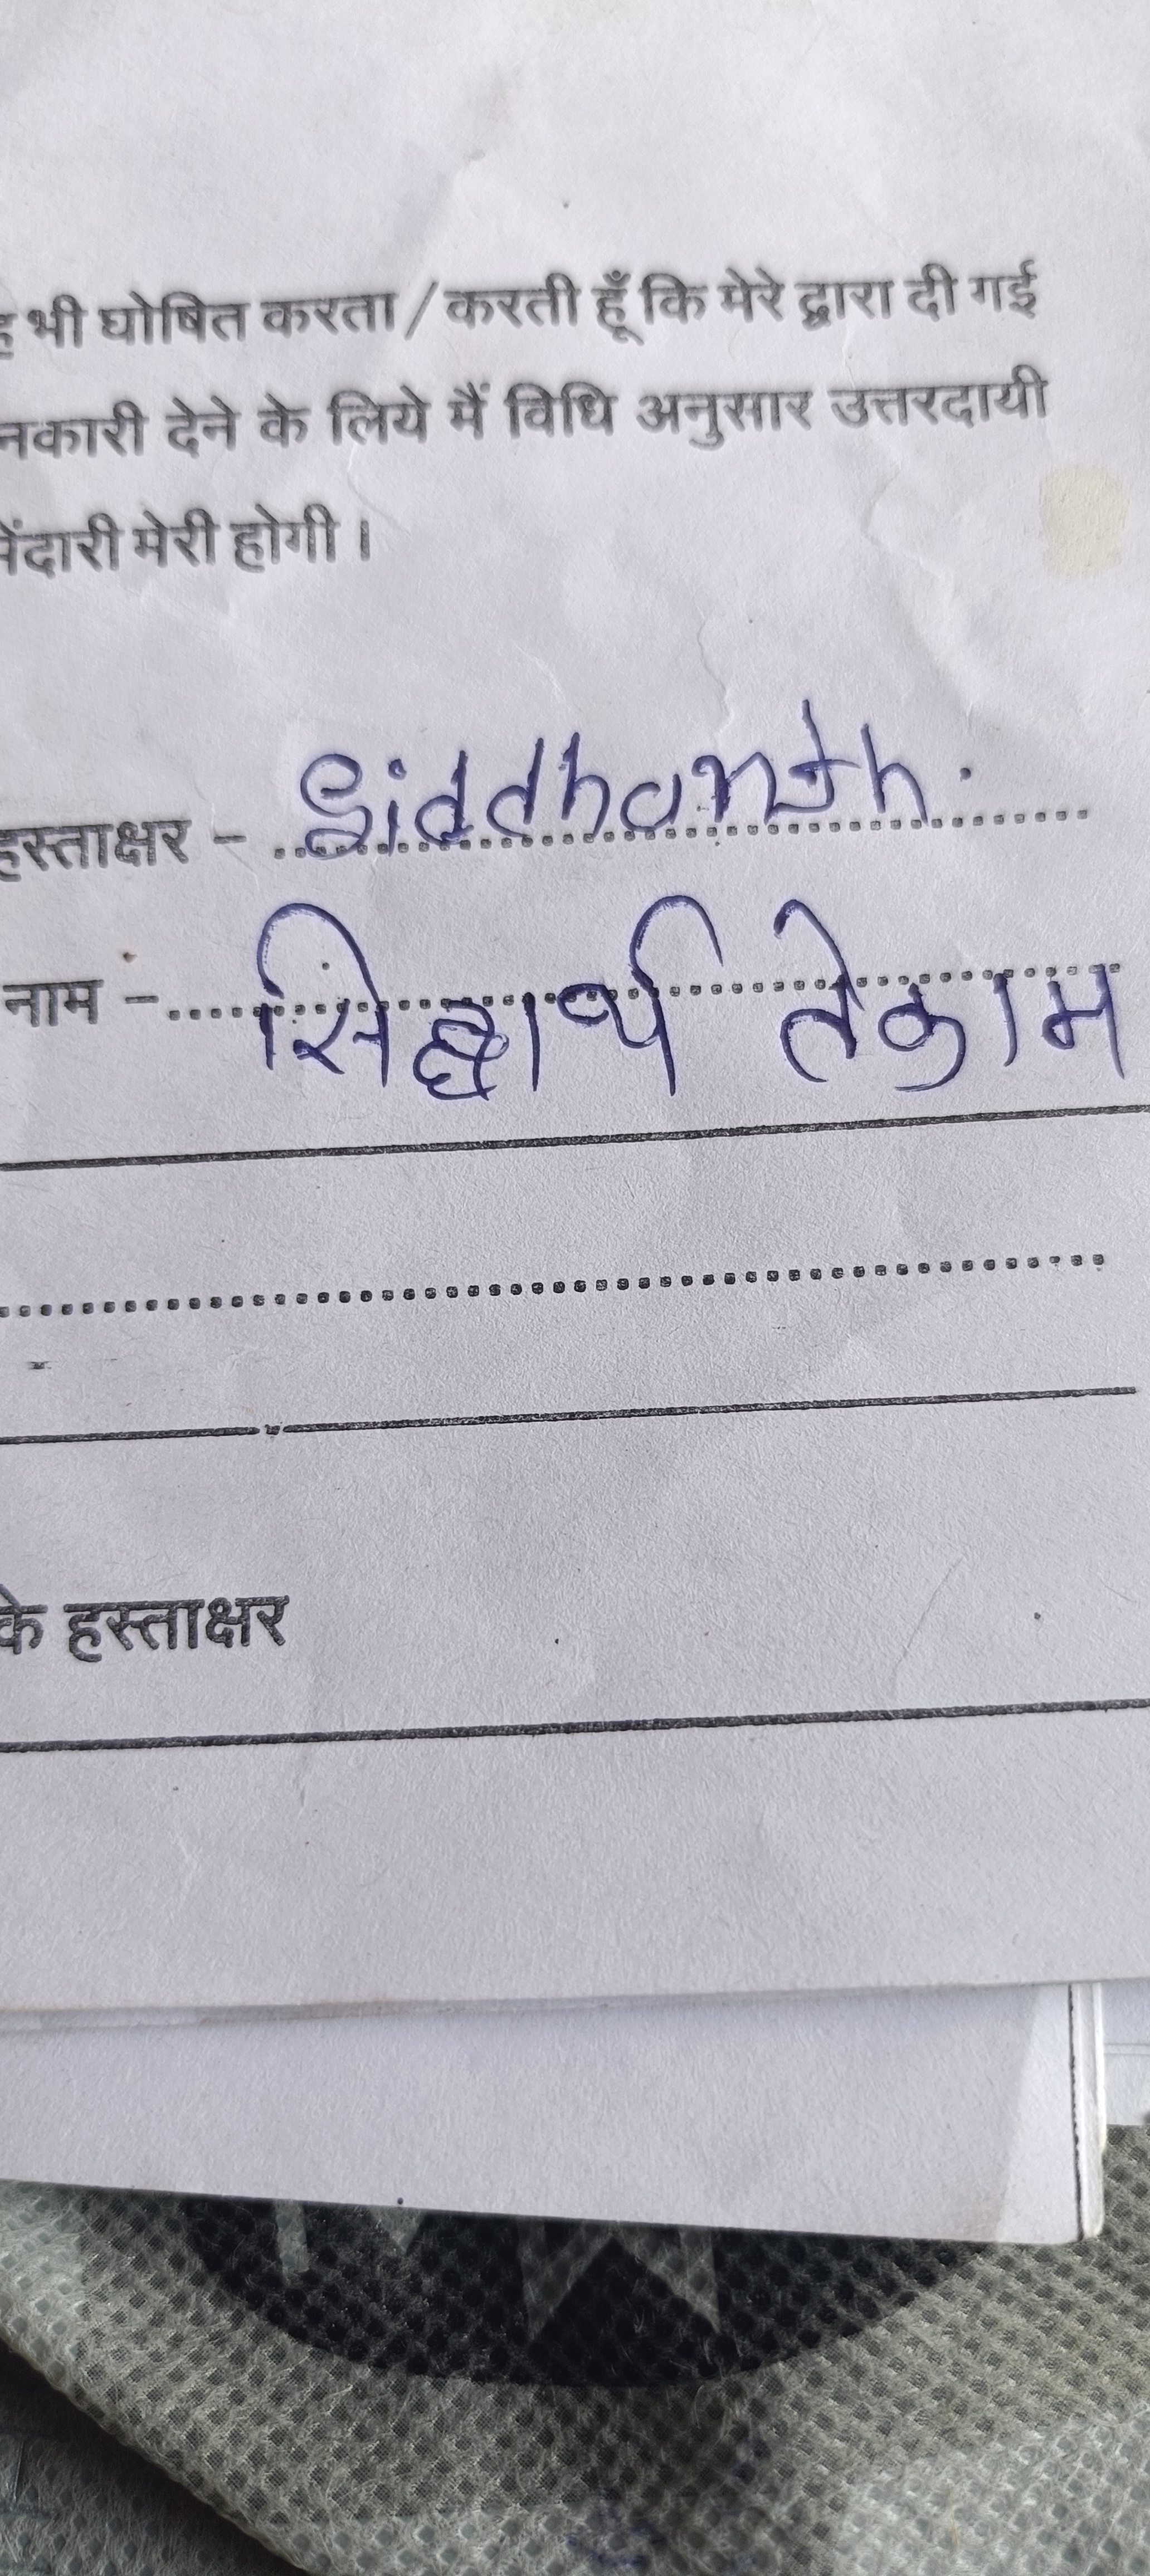 भी घोषित करता / करती हूँ कि मेरे द्वारा दी गई
नकारी देने के लिये मैं विधि अनुसार उत्तरदायी
मेंदारी मेरी होगी।
हस्ताक्षर - Siddhanth.
नाम - सिद्धार्थ तेकाम
के हस्ताक्षर